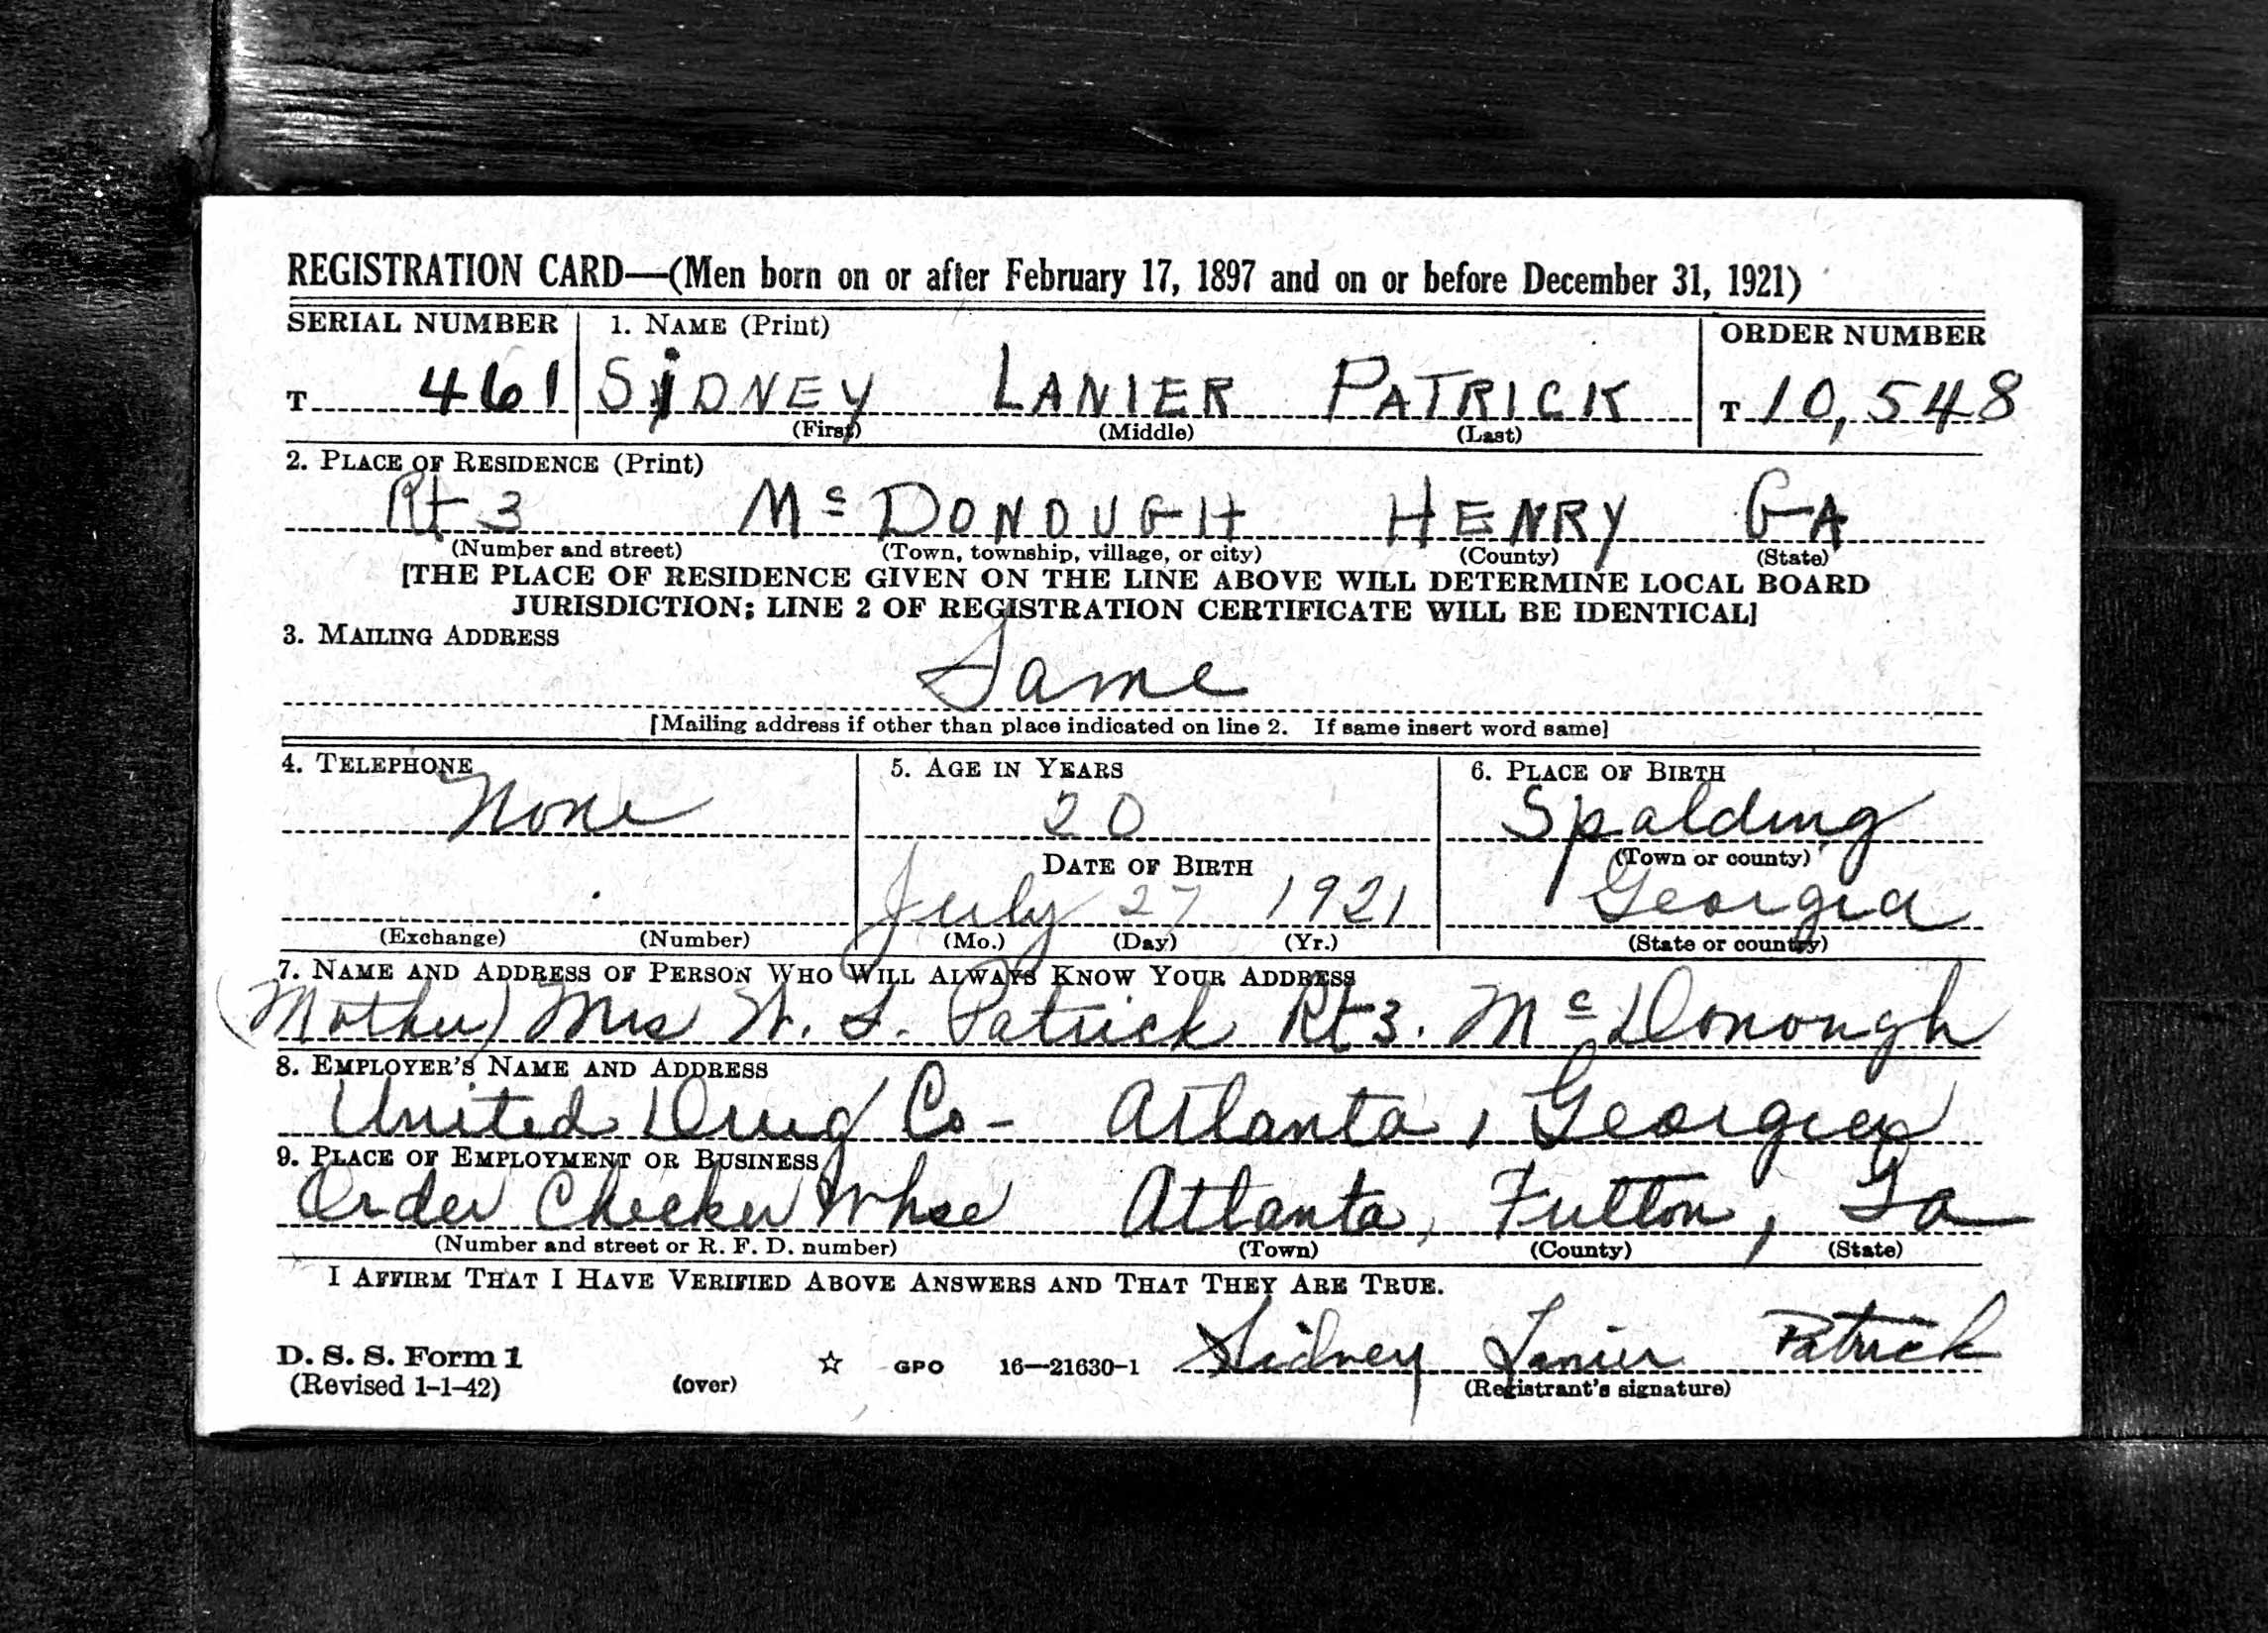 REGISTRATION CARD—(Men born on or after February 17, 1897 and on or before December 31, 1921)
SERIAL NUMBER 1. NAME (Print) ORDER NUMBER
T 461 SIDNEY LANIER PATRICK T 10,548
(First) (Middle) (Last)
2. PLACE OF RESIDENCE (Print)
Rt 3 McDONOUGH HENRY GA
(Number and street) (Town, township, village, or city) (County) (State)
[THE PLACE OF RESIDENCE GIVEN ON THE LINE ABOVE WILL DETERMINE LOCAL BOARD
JURISDICTION; LINE 2 OF REGISTRATION CERTIFICATE WILL BE IDENTICAL]
3. MAILING ADDRESS
Same
[Mailing address if other than place indicated on line 2. If same insert word same]
4. TELEPHONE 5. AGE IN YEARS 6. PLACE OF BIRTH
None 20 Spalding
DATE OF BIRTH (Town or county)
July 27 1921 Georgia
(Exchange) (Number) (Mo.) (Day) (Yr.) (State or country)
7. NAME AND ADDRESS OF PERSON WHO WILL ALWAYS KNOW YOUR ADDRESS
(Mother) Mrs W. S. Patrick Rt 3. McDonough
8. EMPLOYER'S NAME AND ADDRESS
United Drug Co - Atlanta, Georgia
9. PLACE OF EMPLOYMENT OR BUSINESS
Order Checker Whse Atlanta, Fulton, Ga
(Number and street or R. F. D. number) (Town) (County) (State)
I AFFIRM THAT I HAVE VERIFIED ABOVE ANSWERS AND THAT THEY ARE TRUE.
D. S. S. Form 1
(Revised 1-1-42) (over) ☆ GPO 16—21630-1 Sidney Lanier Patrick
(Registrant's signature)